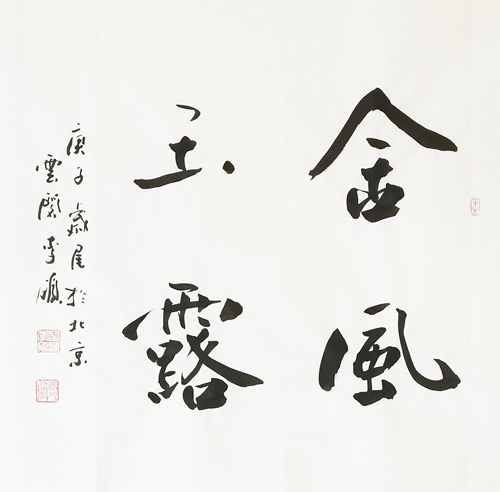 金風
玉露
庚子歲尾於北京
雲閣李鵬